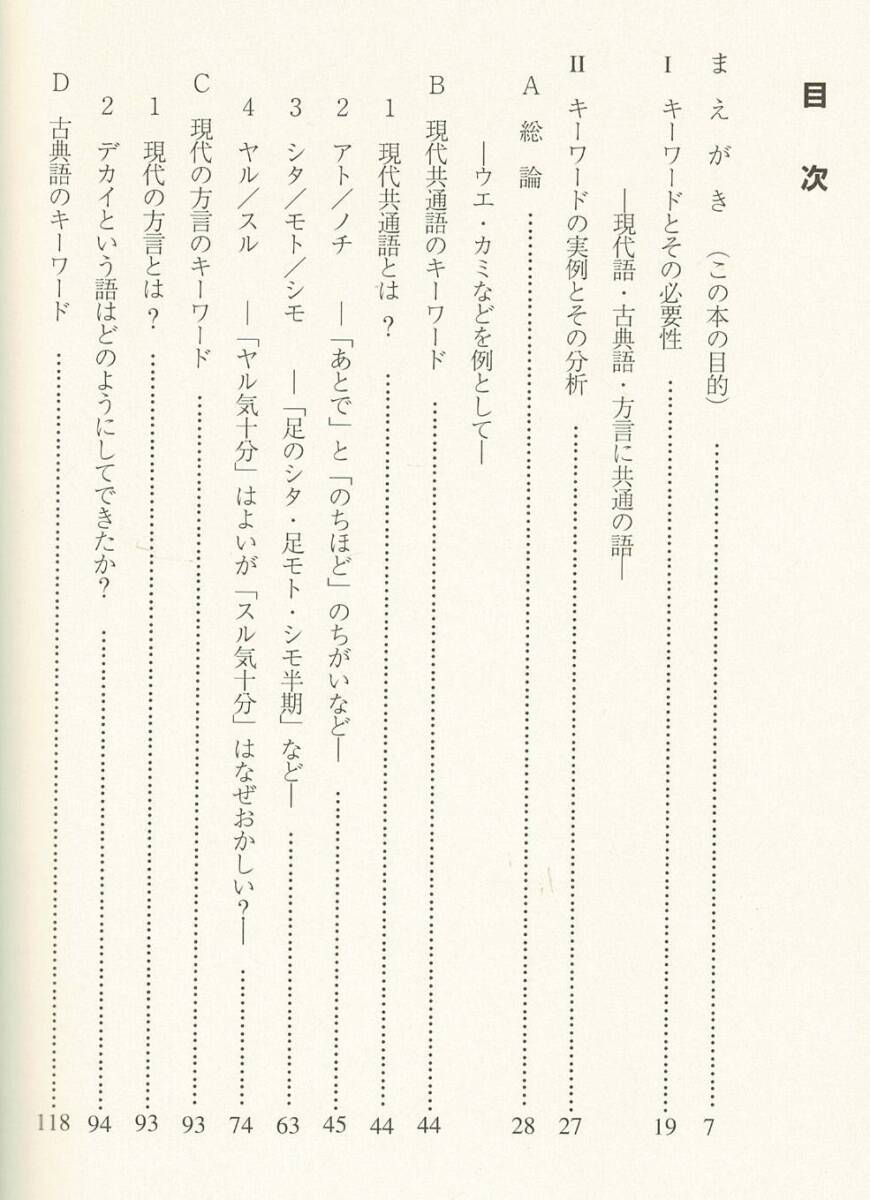 目次
まえがき (この本の目的) …… 7
I キーワードとその必要性 …… 19
―現代語・古典語・方言に共通の語―
II キーワードの実例とその分析 …… 27
A 総論 …… 28
―ウエ・カミなどを例として―
B 現代共通語のキーワード …… 44
1 現代共通語とは? …… 44
2 アト/ノチ ―「あとで」と「のちほど」のちがいなど― …… 45
3 シタ/モト/シモ ―「足のシタ・足モト・シモ半期」など― …… 63
4 ヤル/スル ―「ヤル気十分」はよいが「スル気十分」はなぜおかしい?― …… 74
C 現代の方言のキーワード …… 93
1 現代の方言とは? …… 93
2 デカイという語はどのようにしてできたか? …… 94
D 古典語のキーワード …… 118